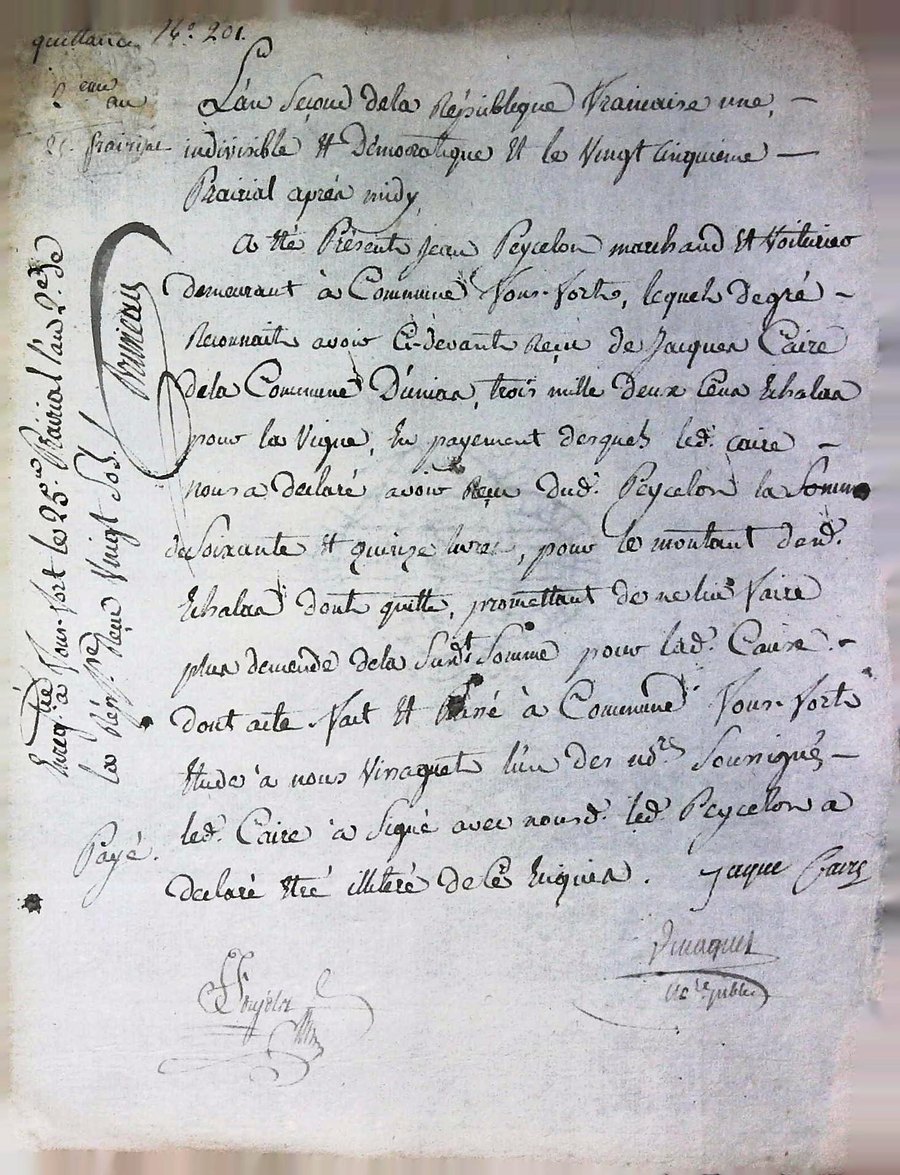 quittance N.° 201.
2.eme an
25. prairial
L'an second de la République francaise une, –
indivisible et Démocratique et le vingt cinquieme –
Prairial aprés midy,
a été Présent Jean Peycelon marchand et voiturier
demeurant à Commune fous-forts, lequel de gré –
Reconnait avoir Ci-devant Reçu de Jacques Caire
de la Commune D'unias, trois mille deux Cens Echalas
pour la vigne, En payement desquels led. Caire –
nous a declaré avoir Reçu dud. Peycelon la Somme
de Soixante et quinze livres, pour le montant desd.
Echalas dont quitte, promettant de ne lui faire
plus demende de la Surd.t Somme pour lad. Caire. –
dont acte fait et Passé à Commune fous-forts
Etude à nous Viraguet l'un des nd.res Soussignés –
led. Caire à Signé avec nousd. led. Peycelon a
declaré etré illiteré de Ce Enquis. Jaque Caire
Enreg.tré à fous-fort le 25.me Prairial l'an 2.e de
la Rép.que Reçu Vingt sols.
Payé.
Viraguet
no.re public